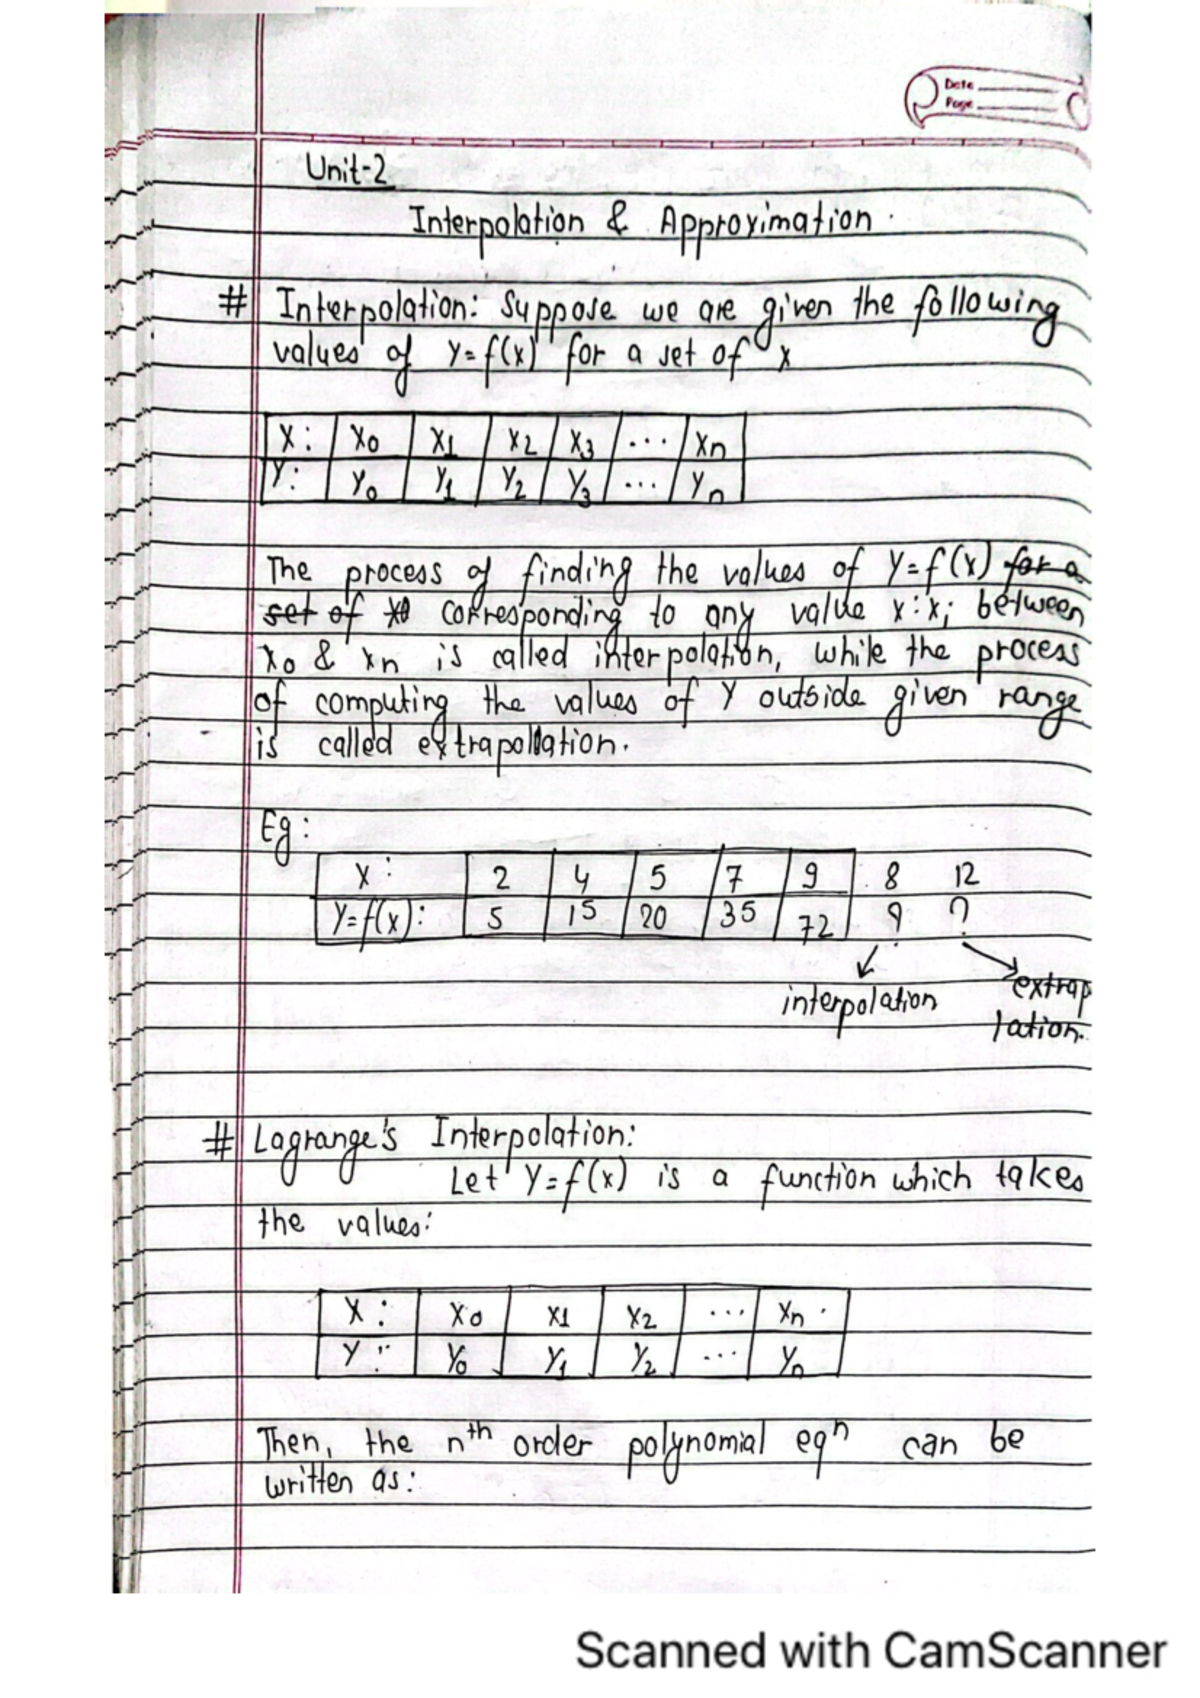 Date
Page
Unit-2
Interpolation & Approximation.
# Interpolation: Suppose we are given the following
values of y=f(x) for a set of x
X: x0 x1 x2 x3 ... xn
Y: y0 y1 y2 y3 ... yn
The process of finding the values of y=f(x) for a
set of corresponding to any value x:xi between
x0 & xn is called interpolation, while the process
of computing the values of y outside given range
is called extrapolation.
Eg:
X: 2 4 5 7 9 8 12
Y=f(x): 5 15 20 35 72 ? ?
interpolation extrap
lation.
# Lagrange's Interpolation:
Let y=f(x) is a function which takes
the values:
X: x0 x1 x2 ... xn
Y: y0 y1 y2 ... yn
Then, the nth order polynomial eqn can be
written as:
Scanned with CamScanner